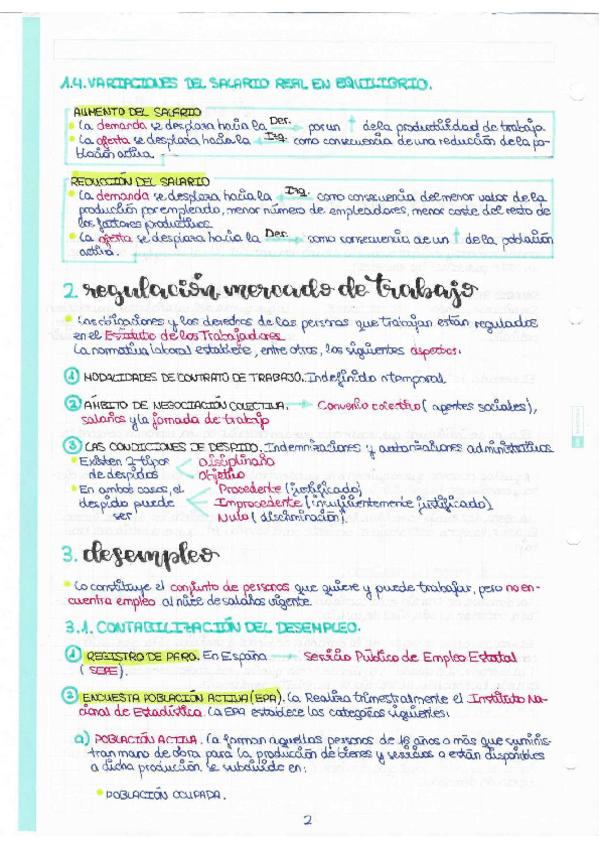 1.4. VARIACIONES DEL SALARIO REAL EN EQUILIBRIO.
AUMENTO DEL SALARIO
La demanda se desplaza hacia la Der. → por un ↑ de la productividad de trabajo.
La oferta se desplaza hacia la ← Izq. como consecuencia de una reducción de la po-
blación activa.
REDUCCIÓN DEL SALARIO
La demanda se desplaza hacia la ← Izq. como consecuencia del menor valor de la
producción por empleado, menor número de empleadores, menor coste del resto de
los factores productivos
La oferta se desplaza hacia la Der. → como consecuencia de un ↑ de la población
activa.
2. regulación mercado de trabajo
Las obligaciones y los derechos de las personas que trabajan están regulados
en el Estatuto de los Trabajadores.
La normativa laboral establece, entre otros, los siguientes aspectos:
① MODALIDADES DE CONTRATO DE TRABAJO. Indefinido o temporal.
② ÁMBITO DE NEGOCIACIÓN COLECTIVA. → Convenio colectivo ( agentes sociales),
salarios y la jornada de trabajo
③ LAS CONDICIONES DE DESPIDO. Indemnizaciones y autorizaciones administrativas
Existen 2 tipos
de despidos
disciplinario
objetivo
En ambos casos, el
despido puede
ser
Procedente (justificado)
Improcedente (insuficientemente justificado)
Nulo (discriminación).
3. desempleo
Lo constituye el conjunto de personas que quiere y puede trabajar, pero no en-
cuentra empleo al nivel de salarios vigente.
3.1. CONTABILIZACIÓN DEL DESEMPLEO.
① REGISTRO DE PARO. En España → Servicio Público de Empleo Estatal
( SEPE).
② ENCUESTA POBLACIÓN ACTIVA (EPA). La Realiza trimestralmente el Instituto Na-
cional de Estadística. La EPA establece las categorías siguientes:
a) POBLACIÓN ACTIVA. La forman aquellas personas de 16 años o más que suminis-
tran mano de obra para la producción de bienes y servicios o están disponibles
a dicha producción se subdivide en:
POBLACIÓN OCUPADA.
2